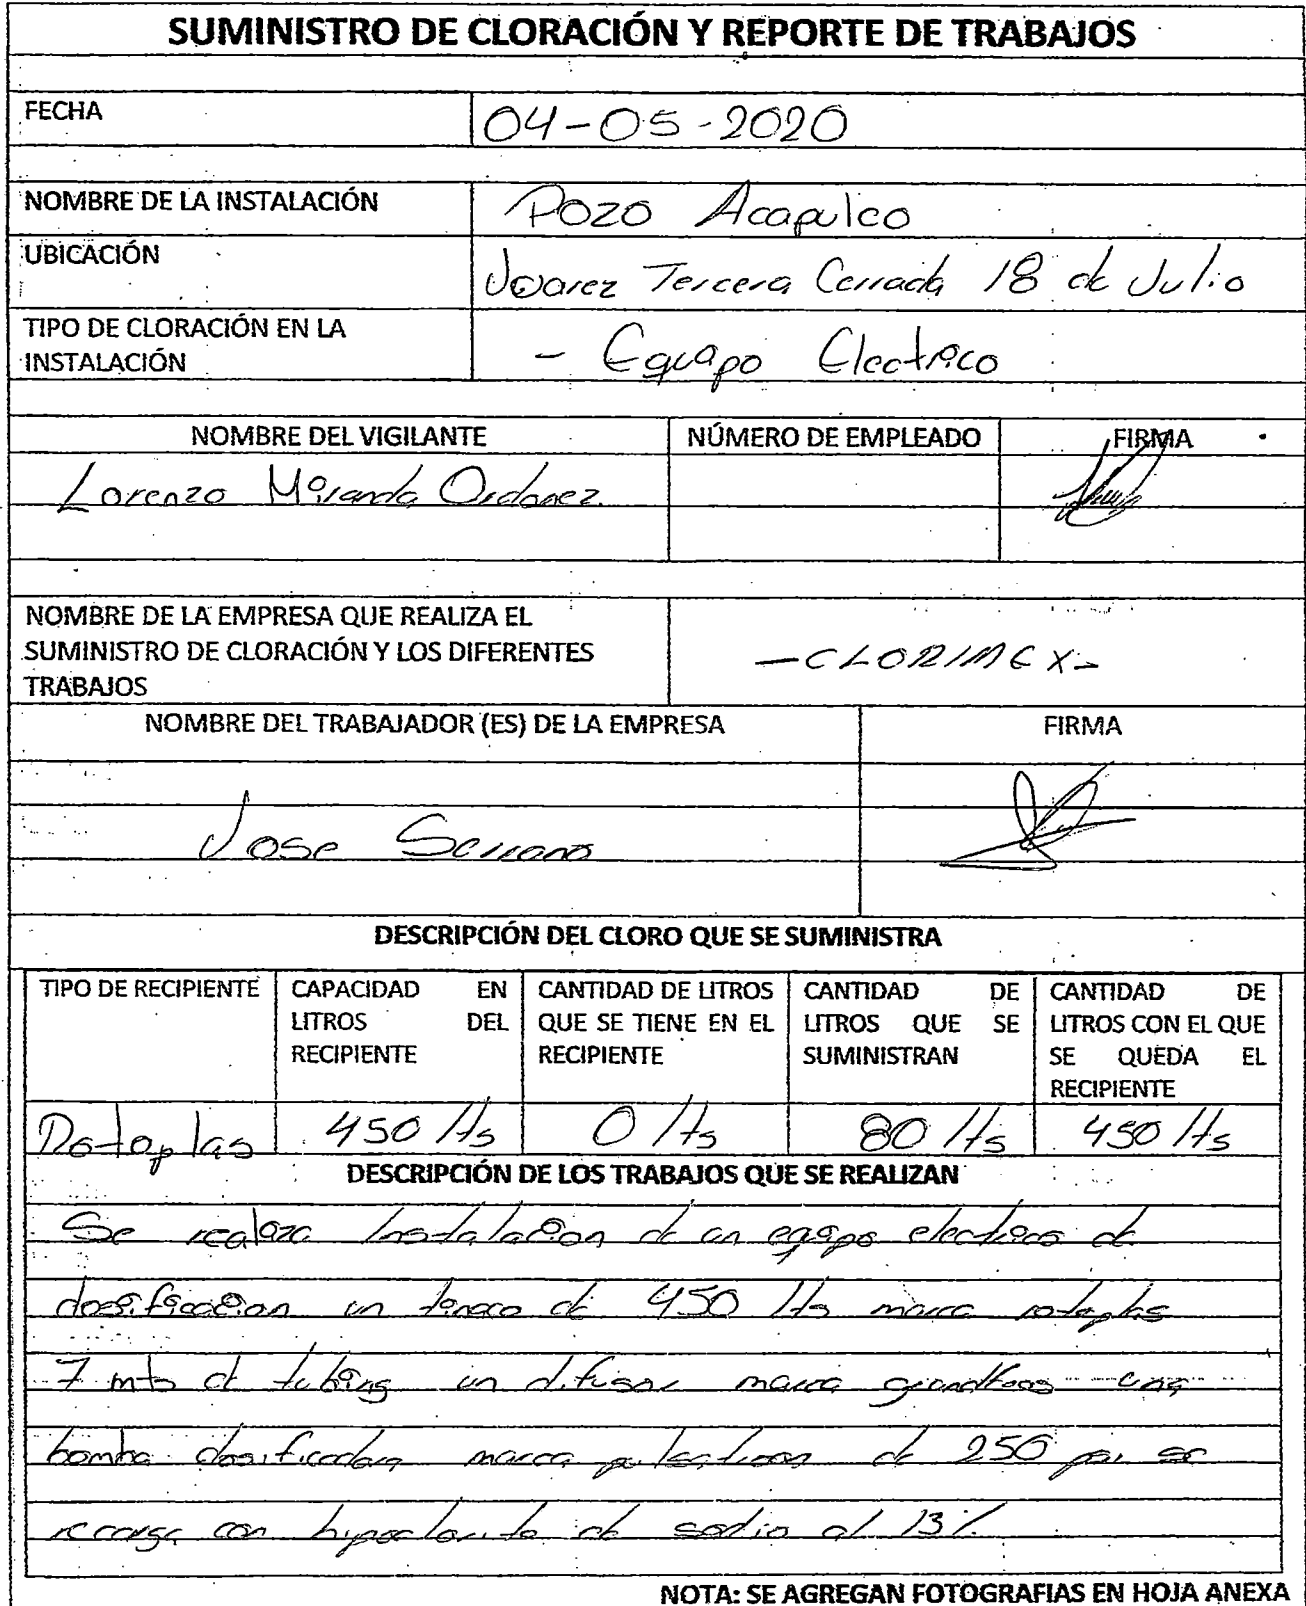 SUMINISTRO DE CLORACIÓN Y REPORTE DE TRABAJOS
FECHA 04-05-2020
NOMBRE DE LA INSTALACIÓN Pozo Acapulco
UBICACIÓN Juarez Tercera Cerrada 18 de Julio
TIPO DE CLORACIÓN EN LA
INSTALACIÓN - Equipo Electrico
NOMBRE DEL VIGILANTE NÚMERO DE EMPLEADO FIRMA
Lorenzo Miranda Ordonez
NOMBRE DE LA EMPRESA QUE REALIZA EL
SUMINISTRO DE CLORACIÓN Y LOS DIFERENTES
TRABAJOS
-CLORIMEX-
NOMBRE DEL TRABAJADOR (ES) DE LA EMPRESA FIRMA
Jose Serrano
DESCRIPCIÓN DEL CLORO QUE SE SUMINISTRA
TIPO DE RECIPIENTE
CAPACIDAD EN
LITROS DEL
RECIPIENTE
CANTIDAD DE LITROS
QUE SE TIENE EN EL
RECIPIENTE
CANTIDAD DE
LITROS QUE SE
SUMINISTRAN
CANTIDAD DE
LITROS CON EL QUE
SE QUEDA EL
RECIPIENTE
Rotoplas 450 lts 0 lts 80 lts 450 lts
DESCRIPCIÓN DE LOS TRABAJOS QUE SE REALIZAN
Se realiza Instalacion de un equipo electrico de
dosificacion un tinaco de 450 lts marca rotoplas
7 mts de tubing un difusor marca grundfoos una
bomba dosificadora marca pulsatroon de 250 psi se
recarga con hipoclorito de sodio al 13%
NOTA: SE AGREGAN FOTOGRAFIAS EN HOJA ANEXA